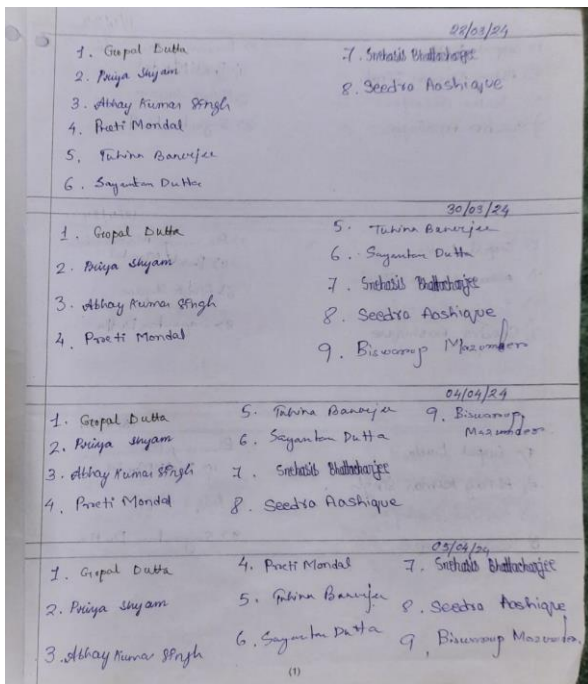 28/03/24
1. Gopal Dutta
2. Priya Shyam
3. Abhay Kumar Singh
4. Preeti Mondal
5. Tuhina Banerjee
6. Sayantan Dutta
7. Snehasis Bhattacharjee
8. Seedra Aashique
30/03/24
1. Gopal Dutta
2. Priya Shyam
3. Abhay Kumar Singh
4. Preeti Mondal
5. Tuhina Banerjee
6. Sayantan Dutta
7. Snehasis Bhattacharjee
8. Seedra Aashique
9. Biswaroop Mazumder
04/04/24
1. Gopal Dutta
2. Priya Shyam
3. Abhay Kumar Singh
4. Preeti Mondal
5. Tuhina Banerjee
6. Sayantan Dutta
7. Snehasis Bhattacharjee
8. Seedra Aashique
9. Biswaroop
Mazumder
05/04/24
1. Gopal Dutta
2. Priya Shyam
3. Abhay Kumar Singh
4. Preeti Mondal
5. Tuhina Banerjee
6. Sayantan Dutta
7. Snehasis Bhattacharjee
8. Seedra Aashique
9. Biswaroop Mazumder
(1)